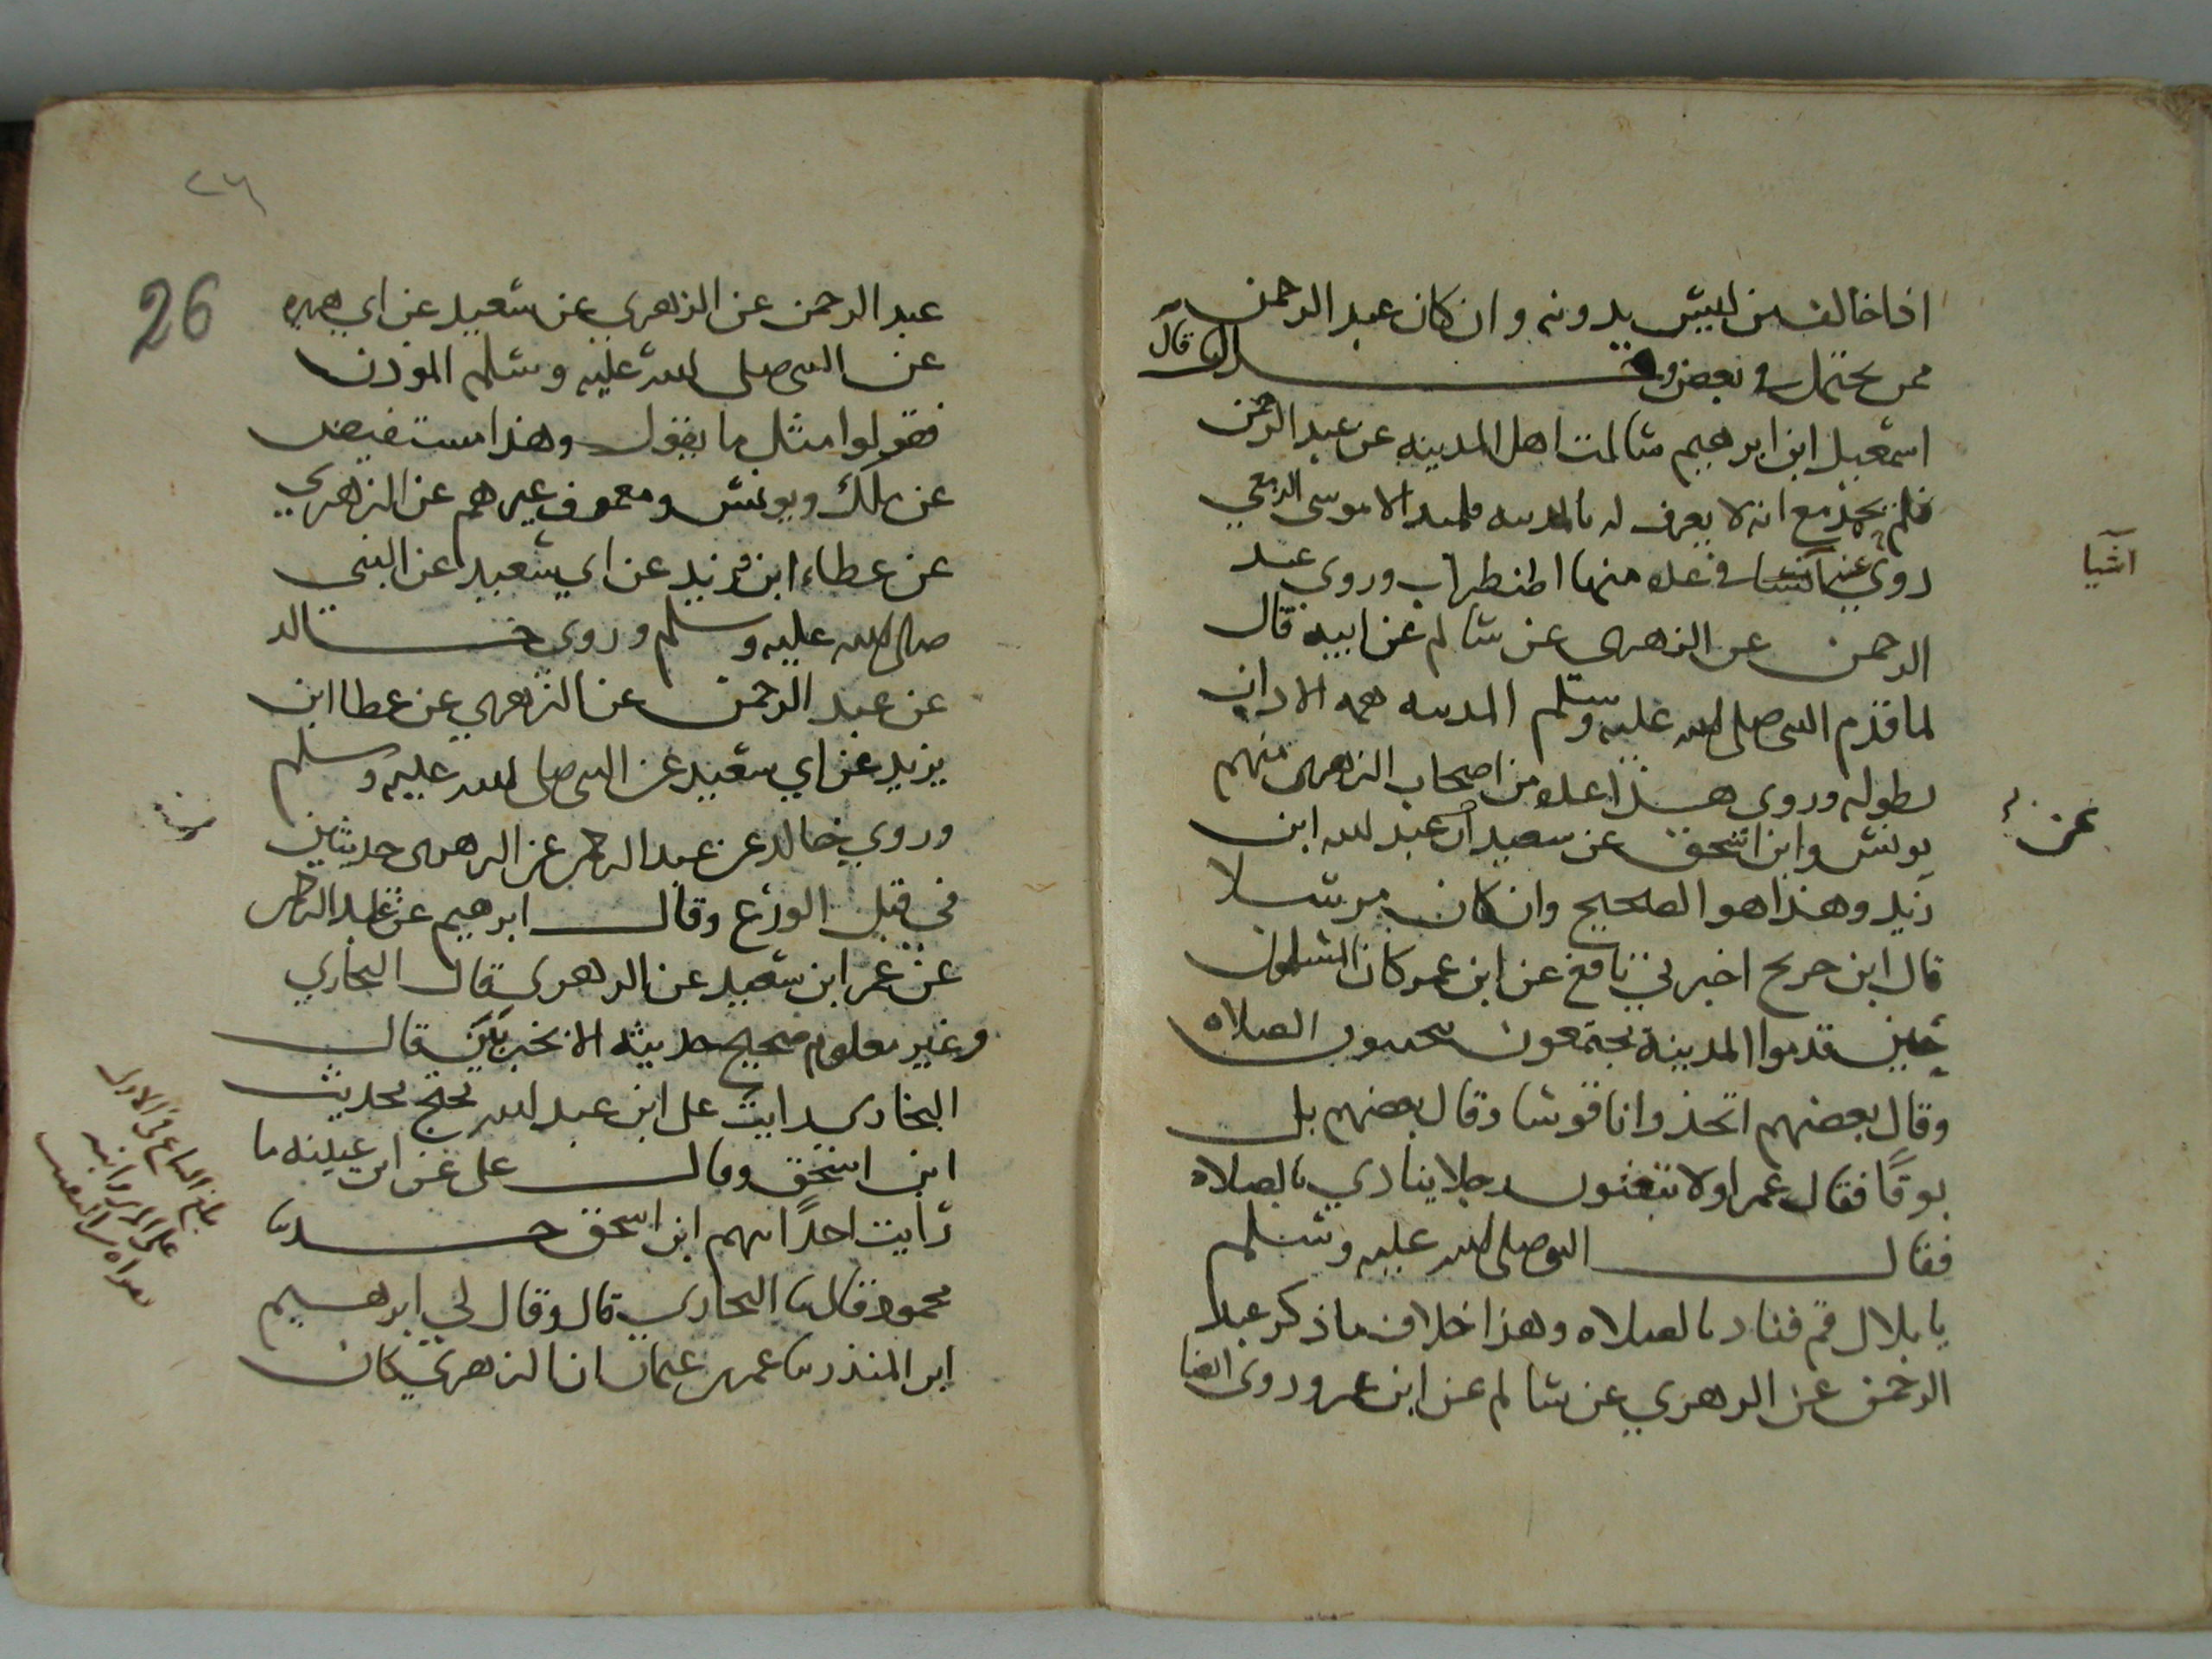 اذا خالف من ليس بدونه وان كان عبد الرحمن
ممن يحتمل في بعض وقال
اسمعيل ابن ابرهيم سالت اهل المدينه عن عبد الرحمن
فلم يحمد مع انه لا يعرف له بالمدينه تلميد الا موسى الزمعي
روي عنه اشيا في عده منها اضطراب وروى عبد
اشيا
الرحمن عن الزهرى عن سالم عن ابيه قال
لما قدم النبى صلى الله عليه وسلم المدينه همه الاذان
بطوله وروى هذا عده من اصحاب الزهرى منهم
يونس وابن اسحق عن سعيد ان عبد الله ابن
عن
زيد وهذا هو الصحيح وان كان مرسلا
قال ابن جريج اخبرني نافع عن ابن عمر كان المسلمون
حين قدموا المدينة يجتمعون يتحينون الصلاه
وقال بعضهم اتخذوا ناقوسا وقال بعضهم بل
بوقًا فقال عمر اولا تبعثون رجلا ينادي بالصلاه
فقال النبي صلى الله عليه وسلم
يا بلال قم فناد بالصلاه وهذا خلاف ما ذكر عبد
الرحمن عن الزهري عن سالم عن ابن عمر وروى ايضا
٢٦
26
عبد الرحمن عن الزهري عن سعيد عن ابي هريره
عن النبى صلى الله عليه وسلم المؤذن
فقولوا مثل ما يقول وهذا مستفيض
عن ملك ويونس ومعمر وغيرهم عن الزهري
عن عطاء ابن يزيد عن ابي سعيد عن النبي
صلى الله عليه وسلم وروى خالد
عن عبد الرحمن عن الزهري عن عطا ابن
يزيد عن ابي سعيد عن النبى صلى الله عليه وسلم
وروي خالد عن عبد الرحمن عن الزهرى حديثين
في قتل الوزع وقال ابرهيم عن عبد الرحمن
عن عمر ابن سعيد عن الزهري قال البخاري
وغير معلوم صحيح حديثه الا بخبر بين قال
البخاري رايت على ابن عبد الله يحتج بحديث
ابن اسحق وقال على عن ابن عيينه ما
رايت احدًا يتهم ابن اسحق حدثنا
محمود قال ثنا البخاري قال وقال لي ابرهيم
ابن المنذر ثنا عمر بن عثمان ان الزهري كان
بلغ السماع في الاول